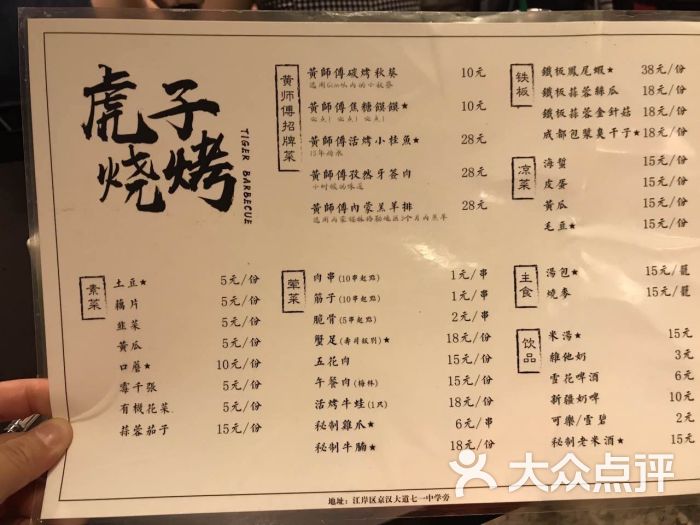 虎子
烧烤
TIGER BARBECUE
黄师傅招牌菜
黃師傅碳烤秋葵 10元
黃師傅焦糖饃饃★ 10元
必点!必点!必点!
黃師傅活烤小桂魚★ 28元
黃師傅孜然牙簽肉 28元
小时候的味道
黃師傅內蒙羔羊排 28元
铁板
鐵板鳳尾蝦★ 38元/份
鐵板蒜蓉絲瓜 18元/份
鐵板蒜蓉金針菇 18元/份
成都包漿臭干子★ 18元/份
凉菜
海蜇 15元/份
皮蛋 15元/份
黃瓜 15元/份
毛豆★ 15元/份
素菜
土豆★ 5元/份
藕片 5元/份
韭菜 5元/份
黃瓜 5元/份
口蘑★ 10元/份
霉千張 5元/份
有機花菜 5元/份
蒜蓉茄子 15元/份
荤菜
肉串(10串起點) 1元/串
筋子(10串起點) 1元/串
脆骨(5串起點) 2元/串
蟹足(壽司級別)★ 18元/份
五花肉 15元/份
午餐肉(梅林) 15元/份
活烤牛蛙(1只) 18元/份
秘制雞爪★ 6元/串
秘制牛腩 18元/份
主食
湯包★ 15元/籠
燒麥 15元/籠
饮品
米湯★ 15元
維他奶 3元
雪花啤酒 6元
新疆奶啤 10元
可樂/雪碧 2元
秘制老米酒★ 15元
地址:江岸区京汉大道七一中学旁
大众点评